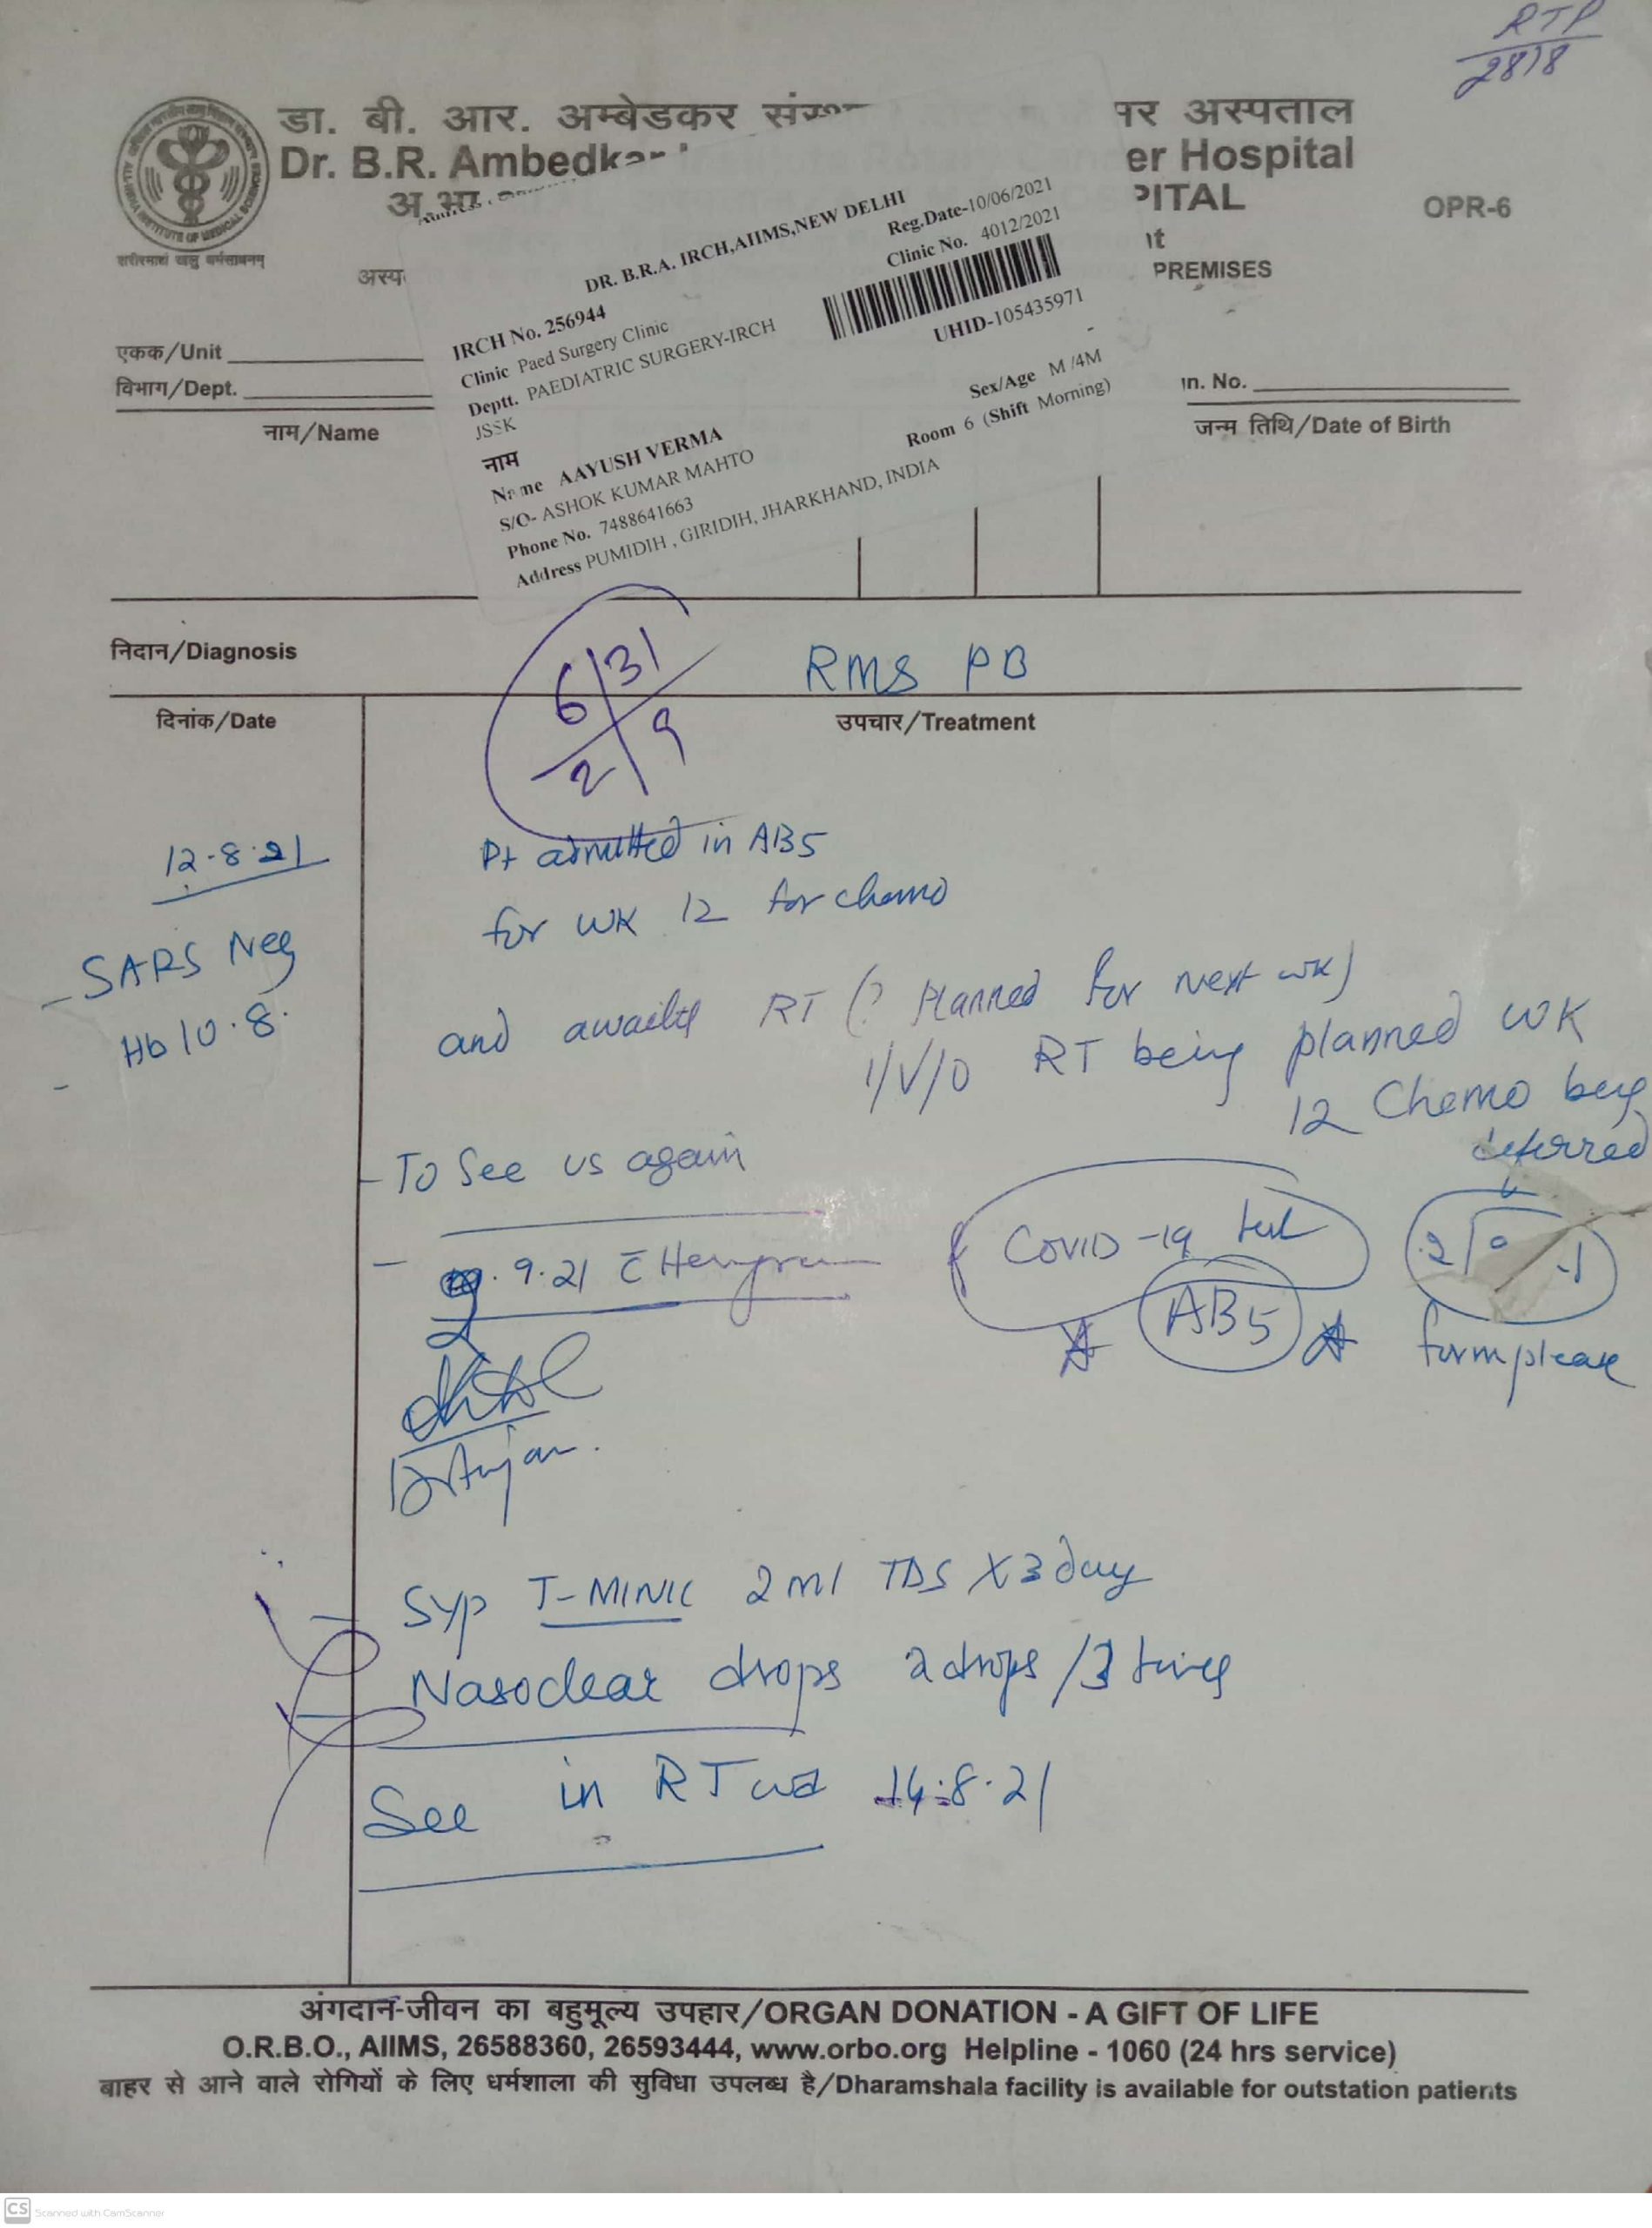 RTP
28/8
डा. बी. आर. अम्बेडकर
पर अस्पताल
Dr. B.R. Ambedkar
er Hospital
अ.भा.
PITAL
OPR-6
ALL-INDIA INSTITUTE OF MEDICAL SCIENCES
शरीरमाद्यं खलु धर्मसाधनम्
अस्प
PREMISES
DR. B.R.A. IRCH,AIIMS,NEW DELHI
Reg.Date-10/06/2021
IRCH No. 256944
Clinic No. 4012/2021
Clinic Paed Surgery Clinic
Deptt. PAEDIATRIC SURGERY-IRCH
UHID-105435971
JSSK
Sex/Age M /4M
नाम
Room 6 (Shift Morning)
Name AAYUSH VERMA
S/O- ASHOK KUMAR MAHTO
Phone No. 7488641663
Address PUMIDIH , GIRIDIH, JHARKHAND, INDIA
एकक/Unit
विभाग/Dept.
नाम/Name
n. No.
जन्म तिथि/Date of Birth
निदान/Diagnosis
RMS PB
6/31
2/9
दिनांक/Date
उपचार/Treatment
12.8.21
Pt admitted in AB5
for WK 12 for chemo
- SARS Neg
and RT (? Planned for next wk)
- Hb 10.8.
I/V/O RT being planned WK
12 Chemo being
deferred
- To See us again
- 9.21 c̄ Hemogram
Covid-19 test
AB5
form please
Dr Anjan.
- Syp T-MINIC 2 ml TDS X 3 day
- Nasoclear drops 2 drops /3 times
See in RT 14.8.21
अंगदान-जीवन का बहुमूल्य उपहार/ORGAN DONATION - A GIFT OF LIFE
O.R.B.O., AIIMS, 26588360, 26593444, www.orbo.org Helpline - 1060 (24 hrs service)
बाहर से आने वाले रोगियों के लिए धर्मशाला की सुविधा उपलब्ध है/Dharamshala facility is available for outstation patients
CS Scanned with CamScanner